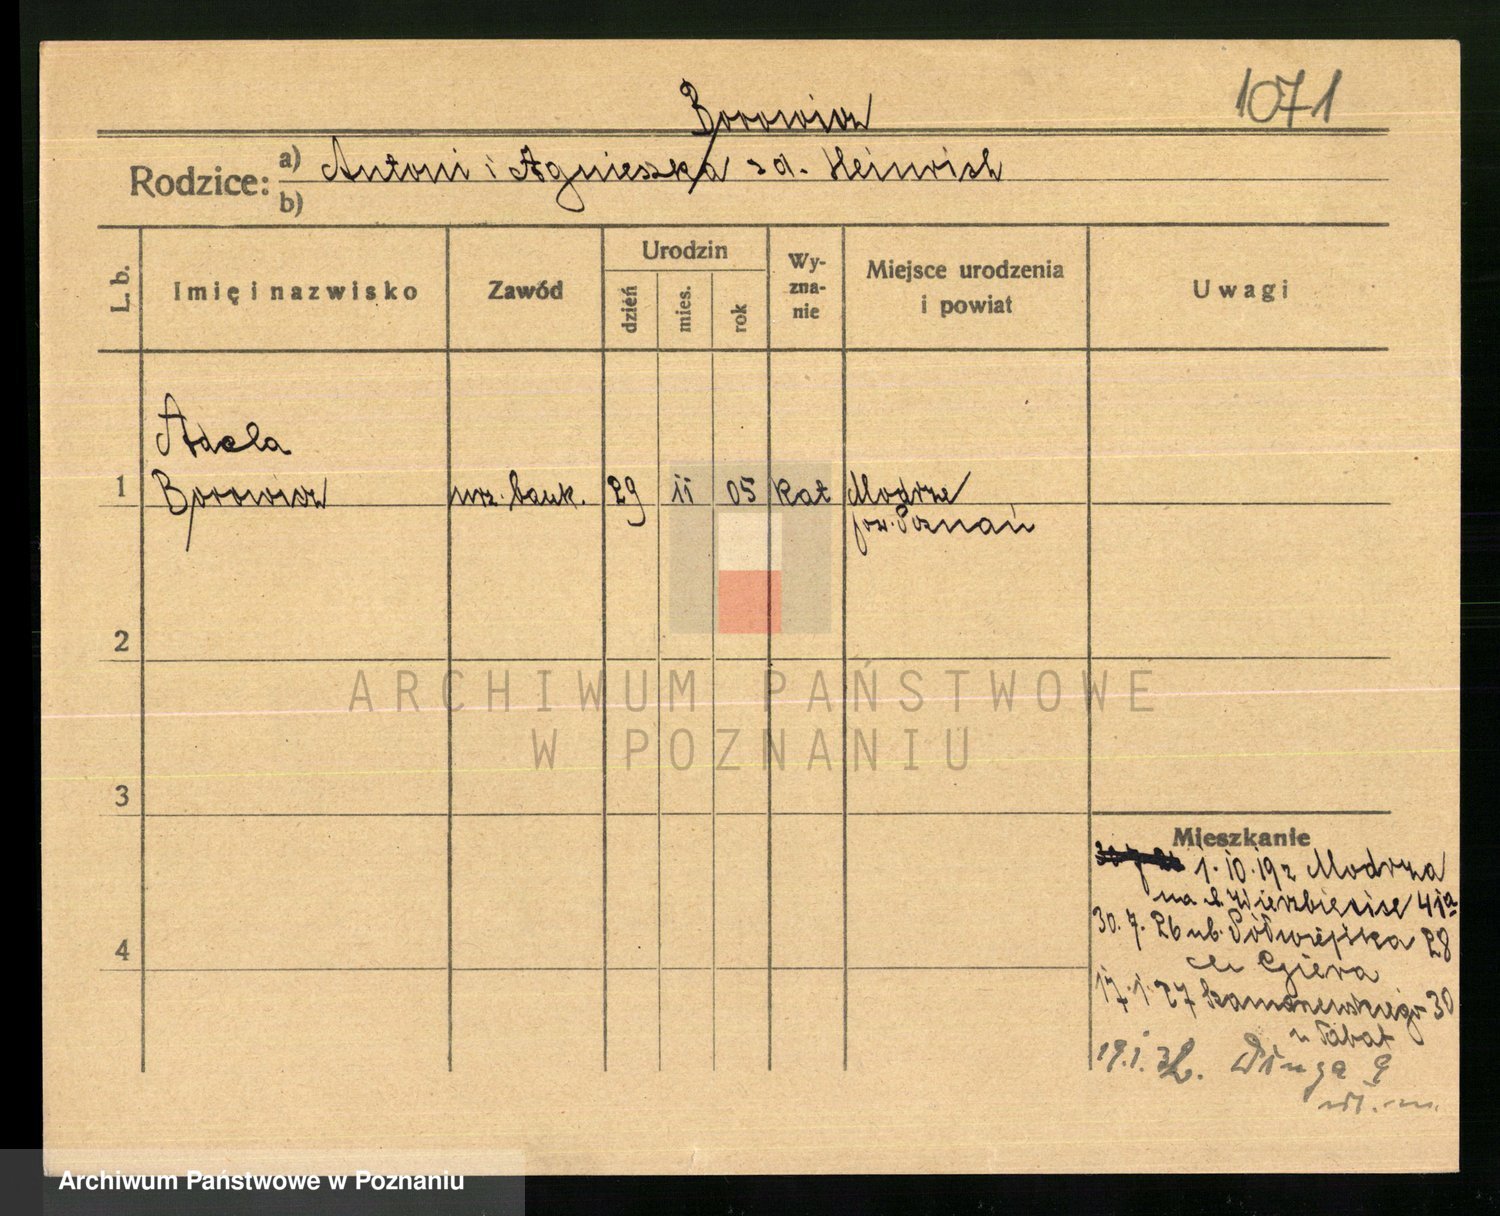 1071
Borowicz
Rodzice: a) Antoni i Agnieszka z d. Heinrich
b)
L. b.
Imię i nazwisko
Zawód
Urodzin
dzień
mies.
rok
Wy-
zna-
nie
Miejsce urodzenia
i powiat
Uwagi
Adela
1 Borowicz urz. bank. 29 11 05 kat Modrze
pow. Poznań
2
ARCHIWUM PAŃSTWOWE
W POZNANIU
3
Mieszkanie
1.10.19 z Modrza
na Wierzbięcice 41a
4
30.7.26 Półwiejska 28
17.1.27 30
19.1.32. Długa 9
Archiwum Państwowe w Poznaniu